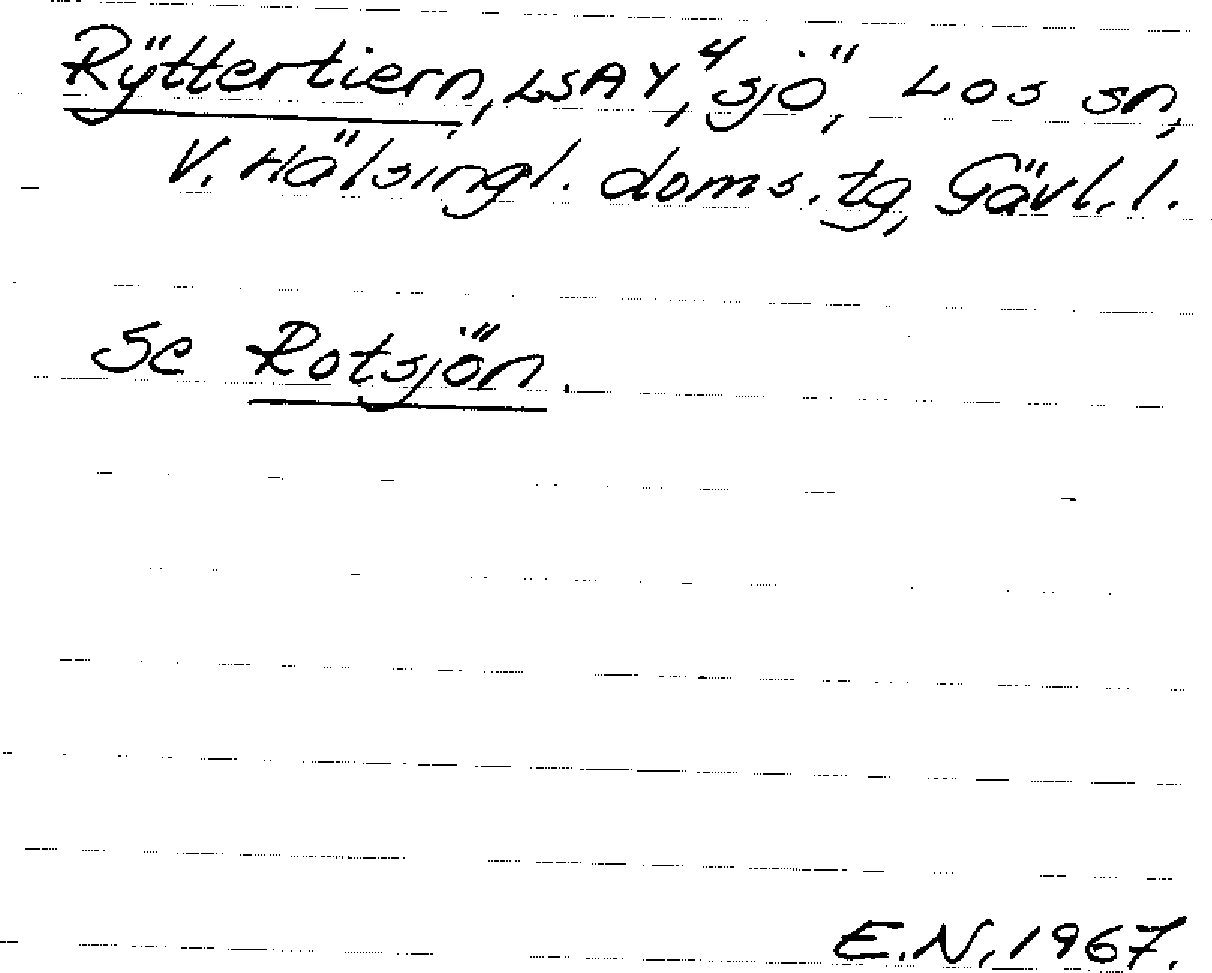 Rÿttertiern, LSA Y⁴, sjö, Los sn,
V. Hälsingl. doms. tg, Gävl. l.
Se Rotsjön.
E.N. 1967.